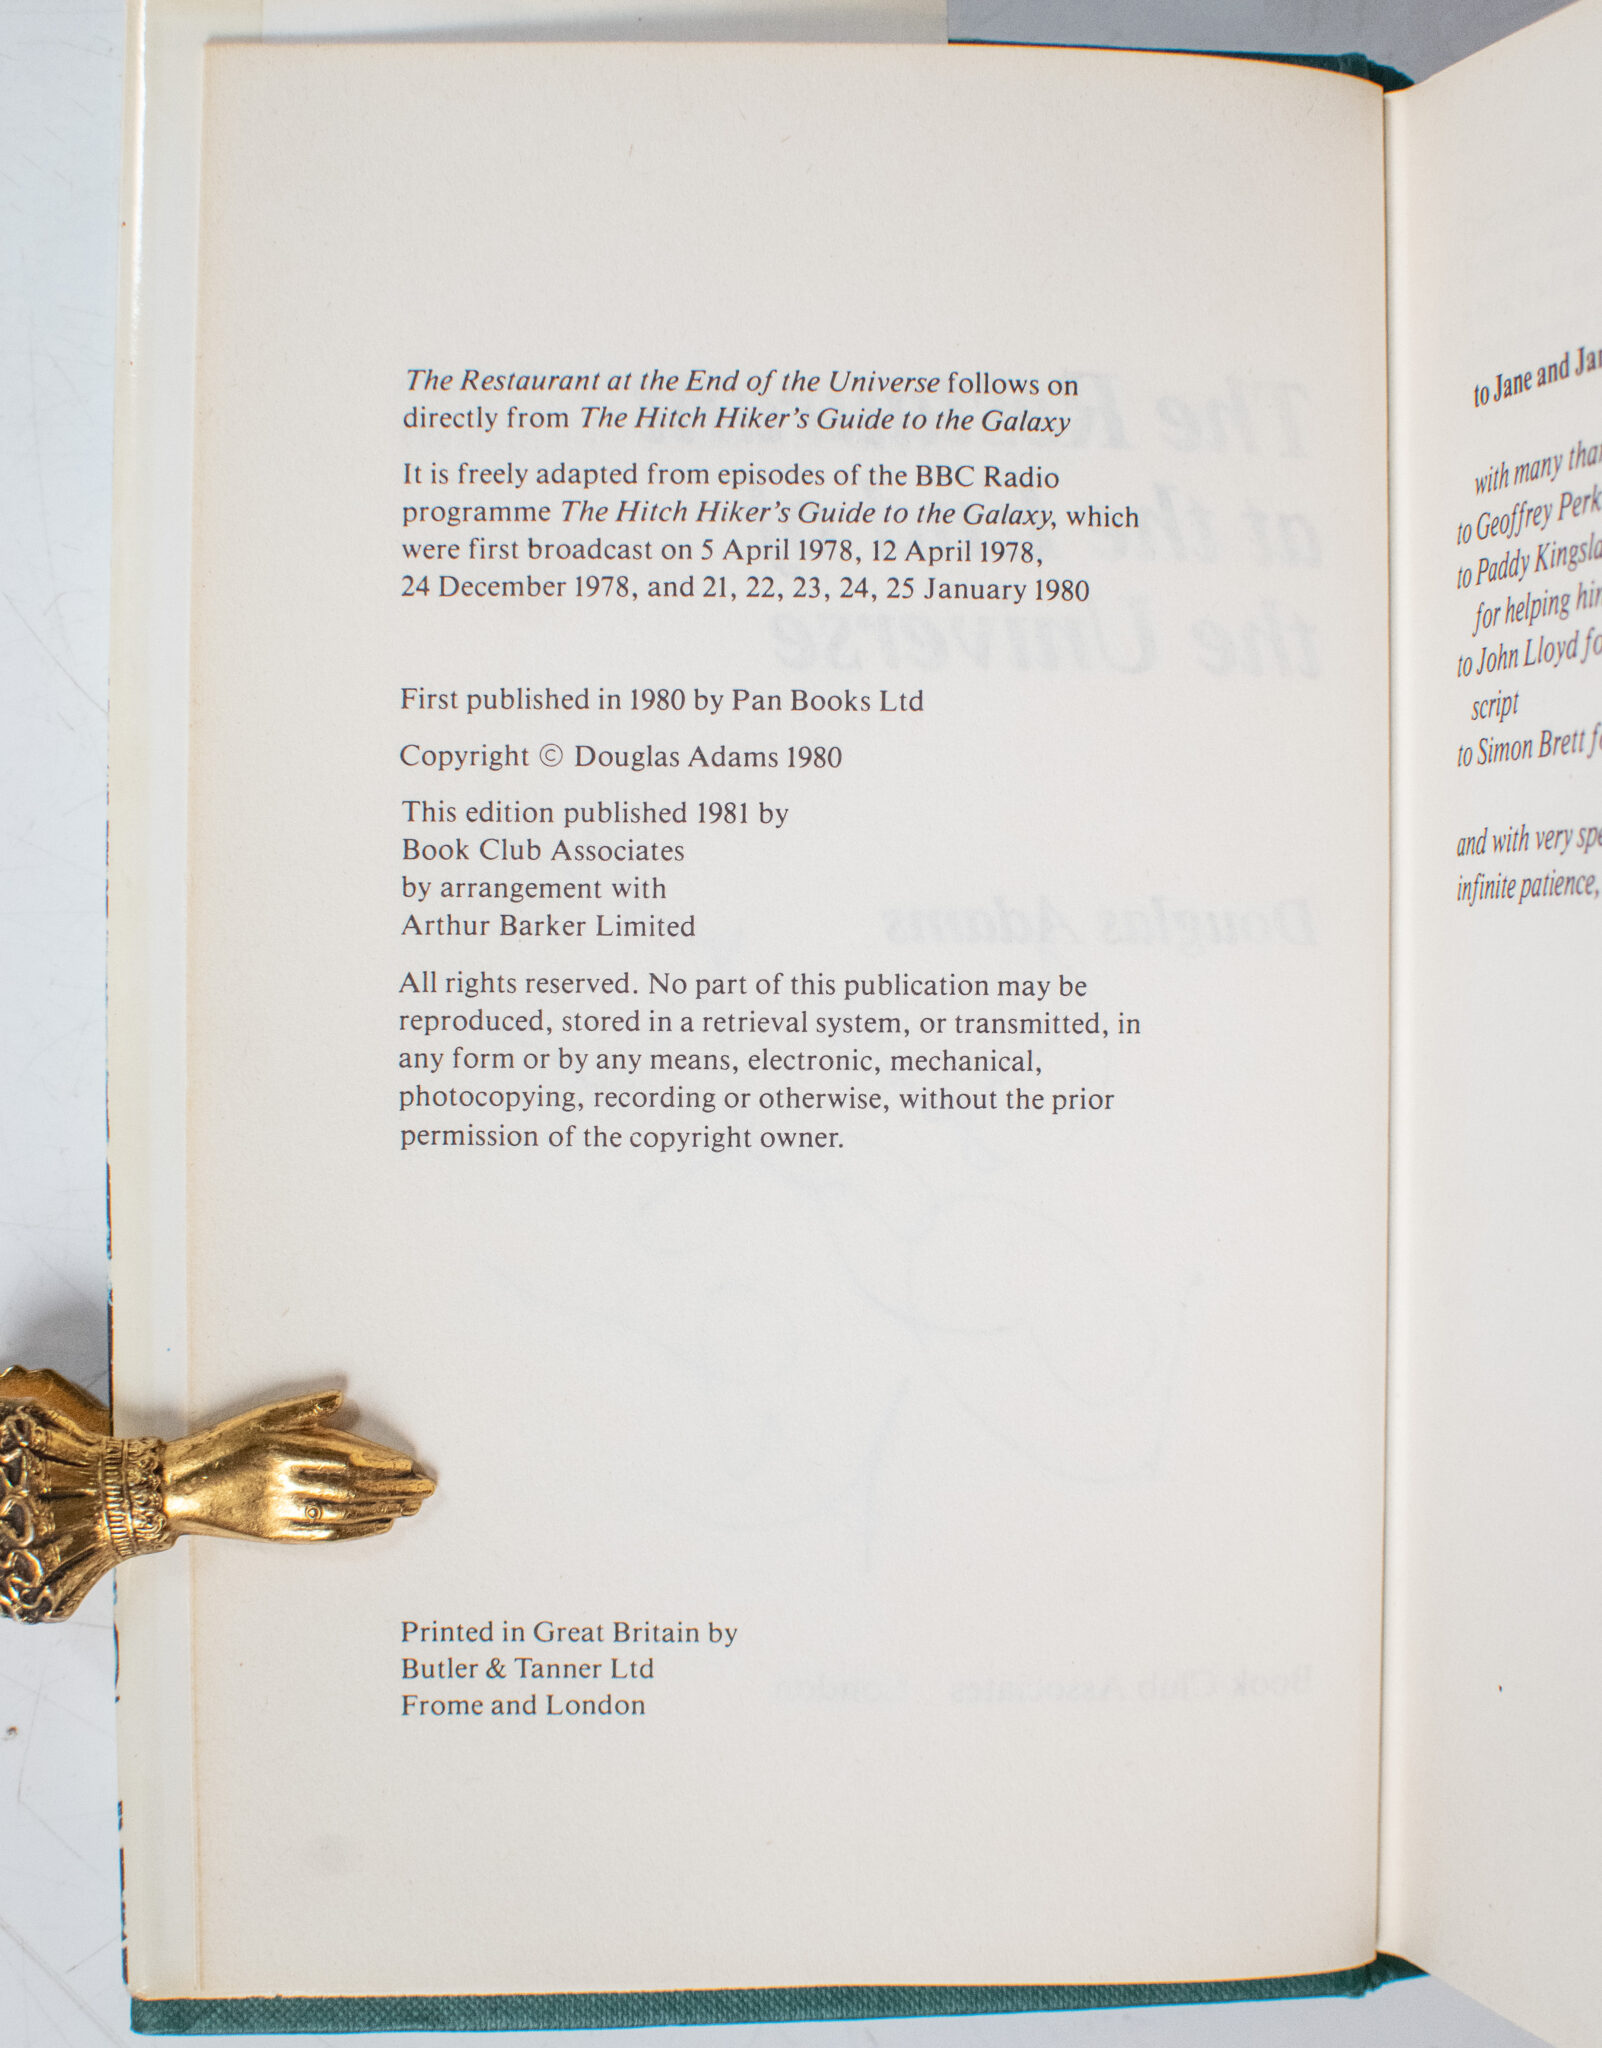 The Restaurant at the End of the Universe follows on
directly from The Hitch Hiker's Guide to the Galaxy
It is freely adapted from episodes of the BBC Radio
programme The Hitch Hiker's Guide to the Galaxy, which
were first broadcast on 5 April 1978, 12 April 1978,
24 December 1978, and 21, 22, 23, 24, 25 January 1980
First published in 1980 by Pan Books Ltd
Copyright © Douglas Adams 1980
This edition published 1981 by
Book Club Associates
by arrangement with
Arthur Barker Limited
All rights reserved. No part of this publication may be
reproduced, stored in a retrieval system, or transmitted, in
any form or by any means, electronic, mechanical,
photocopying, recording or otherwise, without the prior
permission of the copyright owner.
Printed in Great Britain by
Butler & Tanner Ltd
Frome and London
to Jane and
with many
to Geoffrey
to Paddy
for helping
to John Lloyd
script
to Simon Brett
and with very
infinite patience,